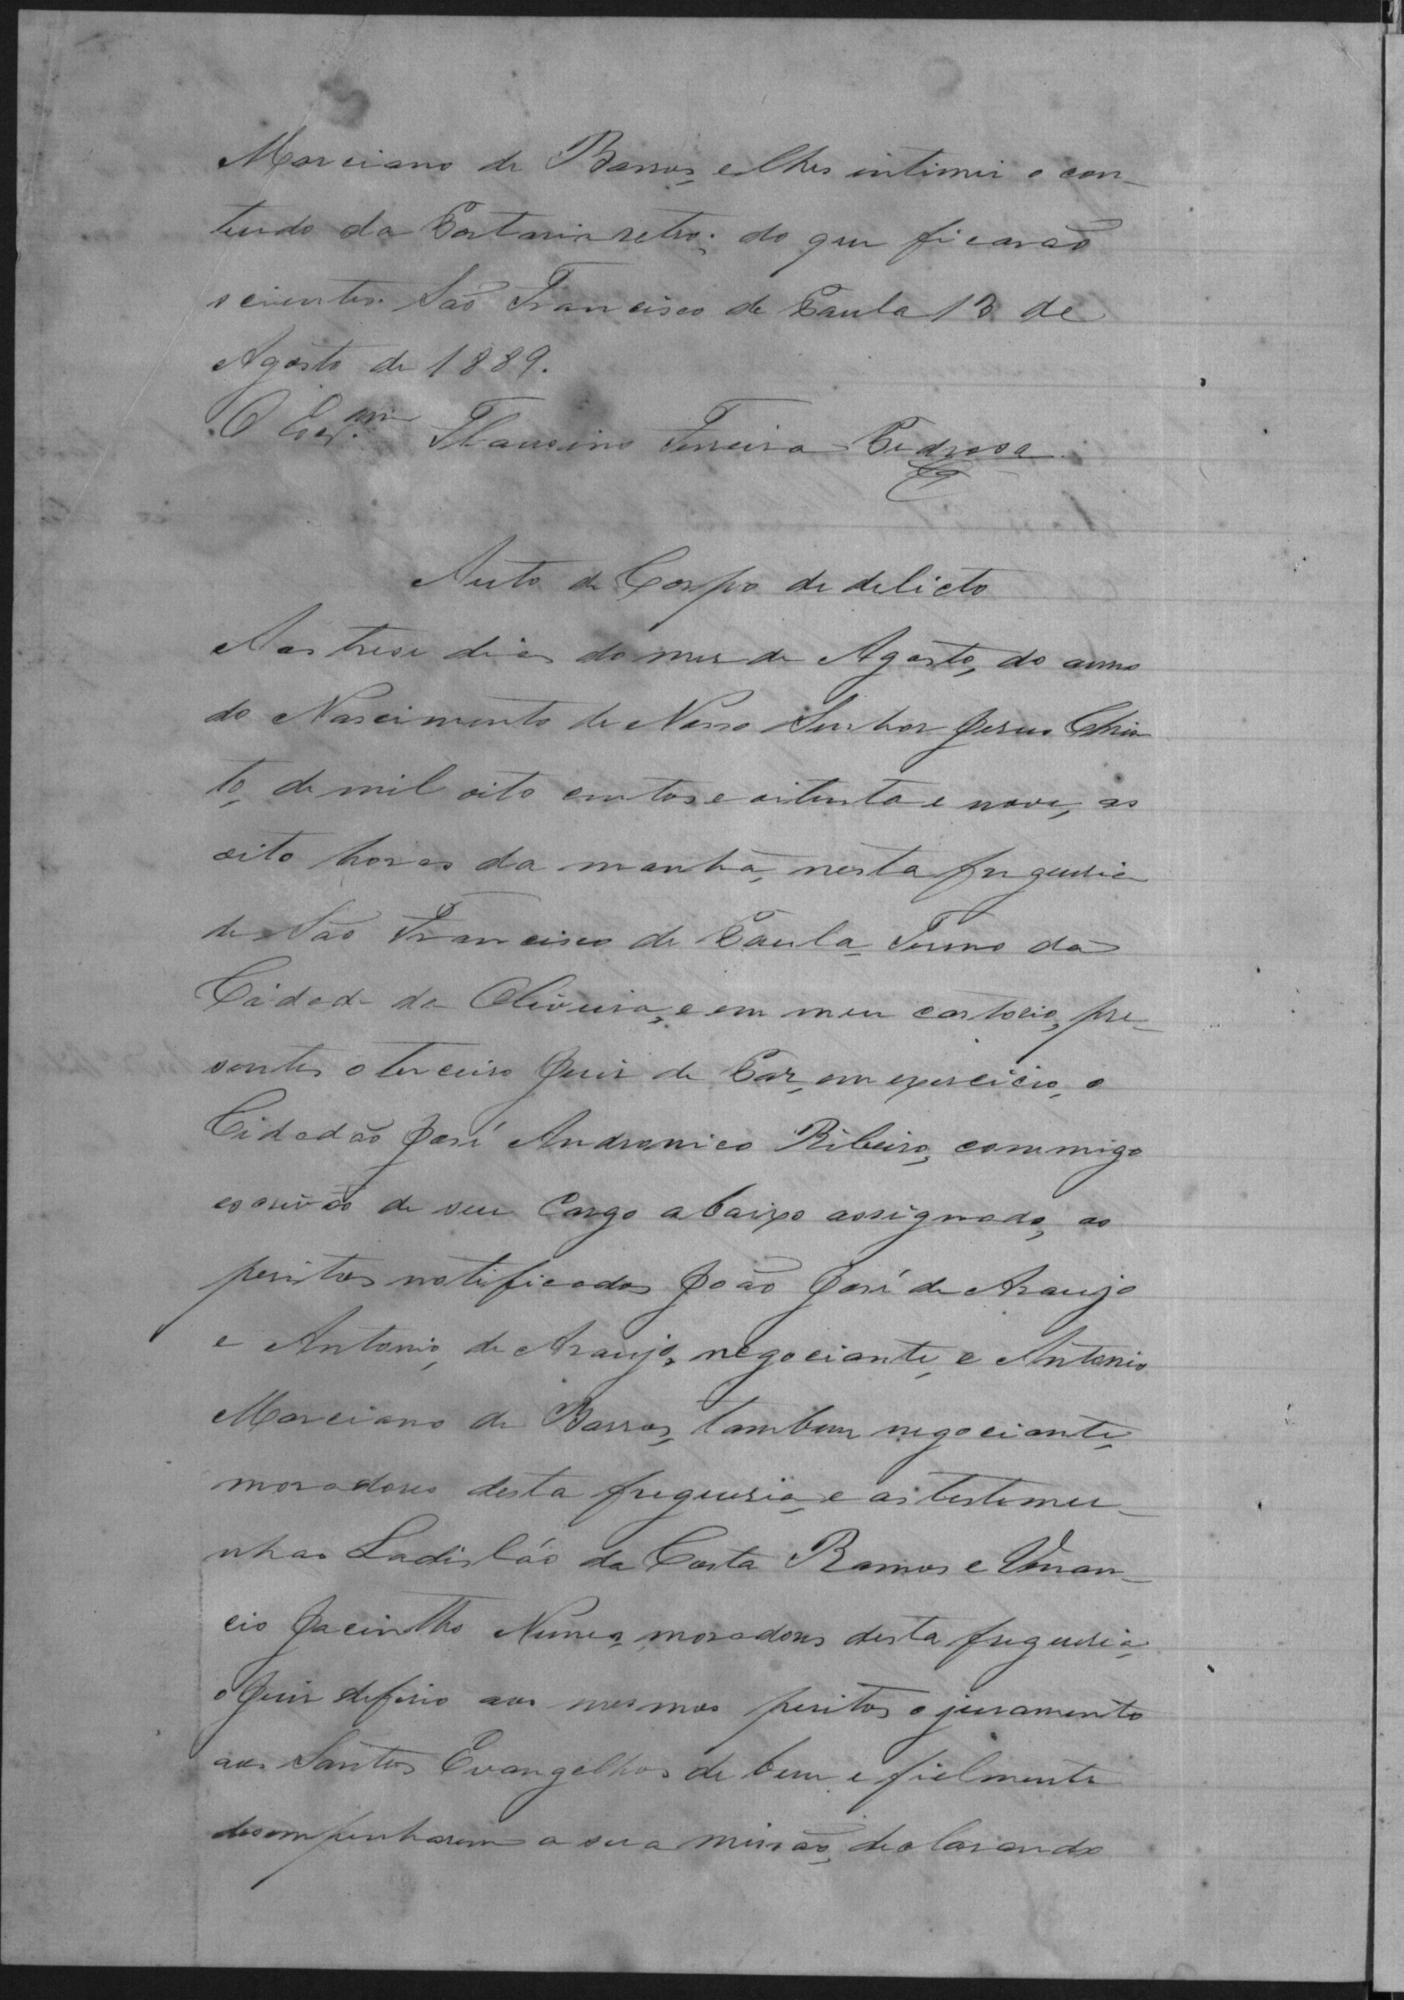 Marciano de Barros, e lhes intimei o con-
teudo da Portaria retro; do que ficarão
scientes. São Francisco de Paula 13 de
Agosto de 1889.
O Escr.am Flausino Ferreira Pedrosa
Auto de Corpo de delicto
Aos trese dias do mes de Agosto, do anno
do Nascimento de Nosso Senhor Jesus Chris
to, de mil oito centos e oitenta e nove, as
oito horas da manhã, nesta freguesia
de São Francisco de Paula, Termo da
Cidade da Oliveira, e em meu cartorio, pre-
sentes o terceiro Juiz de Paz, em exercicio, o
Cidadão José Andronico Ribeiro, commigo
escrivão de seu Cargo abaixo assignado, os
peritos notificados João José de Araujo
e Antonio, de Araujo, negociante, e Antonio
Marciano de Barros, tambem negociante,
moradores desta freguesia, e as testemu-
nhas Ladisláo da Costa Ramos e Venan-
cio Jacintho Nunes, moradores desta freguesia,
o Juiz deferio aos mesmos peritos o juramento
aos Santos Evangelhos de bem e fielmente
desempenharem a sua missão, declarando